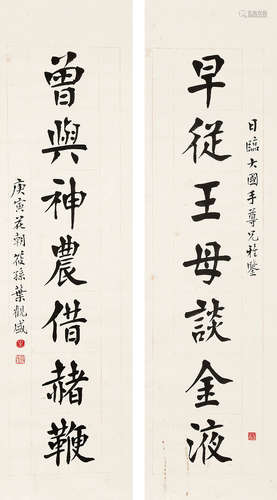 日臨大國手尊兄雅鑒
早從王母談金液
曾與神農借赭鞭
庚寅花朝筱孫葉觀盛